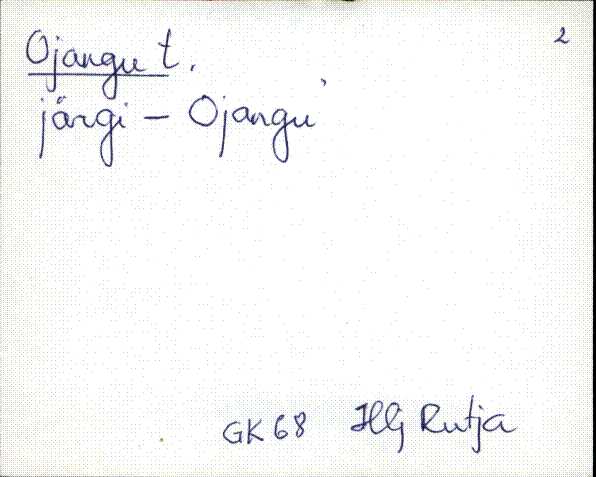 2
Ojangu t.
järgi – Ojangu'
GK 68 Hlj Rutja